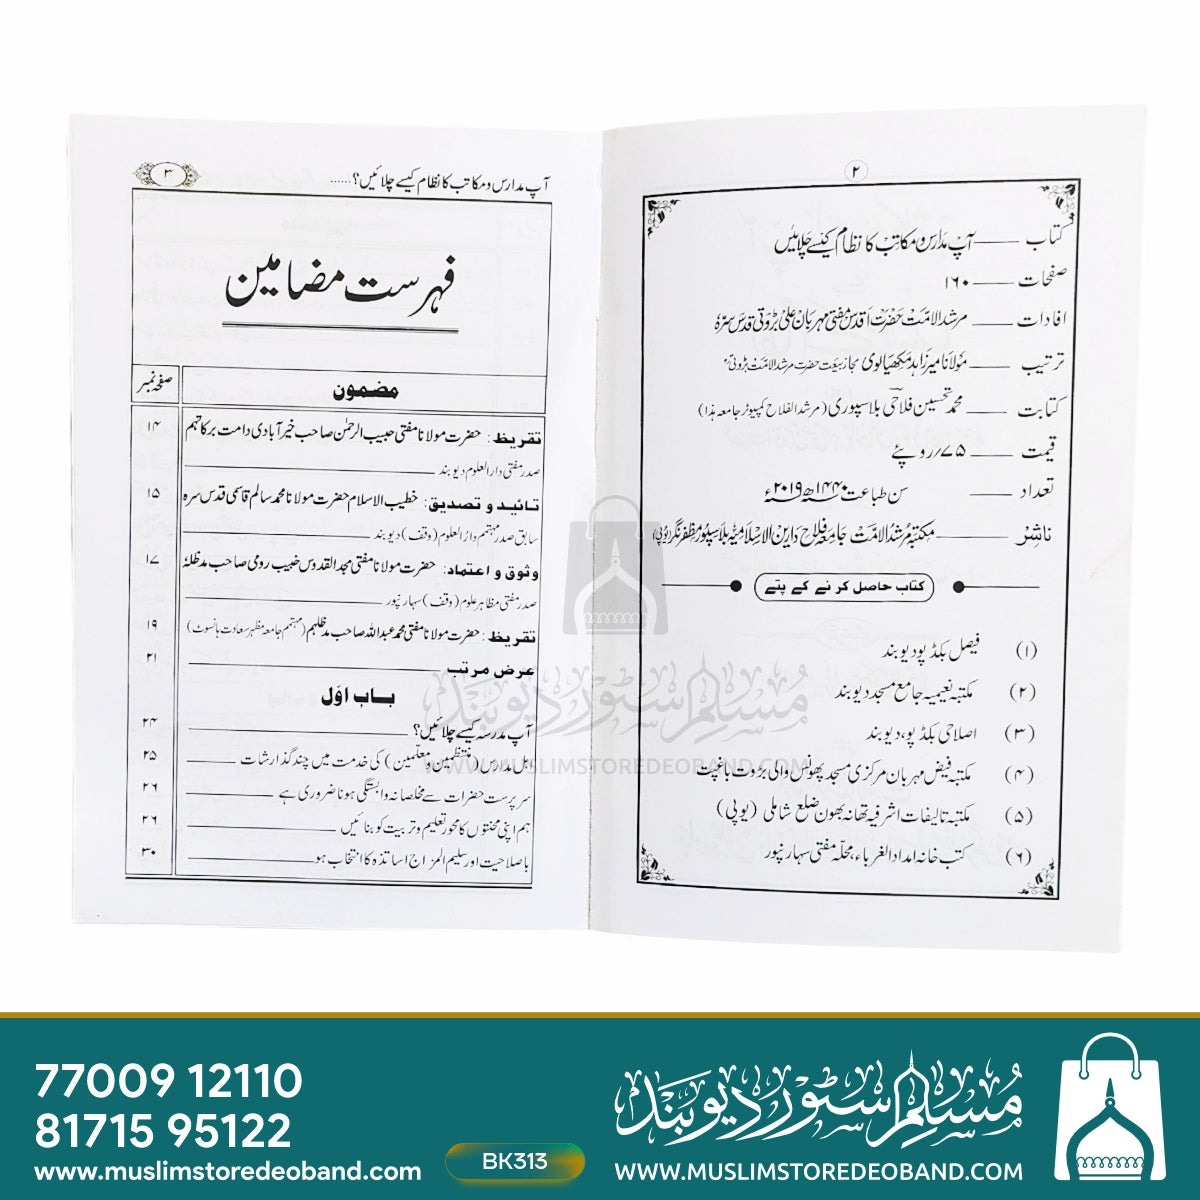 ۲
کتاب ـــــ آپ مدارس و مکاتب کا نظام کیسے چلائیں
صفحات ـــــ ۱۶۰
افادات ـــــ مرشد الامت حضرت اقدس مفتی مہربان علی بڑوتی قدس سرہٗ
ترتیب ـــــ مولانا میر زاہد مکھیالوی مجاز بیعت حضرت مرشد الامت بڑوتیؒ
کتابت ـــــ محمد تحسین فلاحی بلاسپوری (مرشد الفلاح کمپیوٹر جامعہ ہذا)
قیمت ـــــ ۷۵/روپئے
تعداد ـــــ سن طباعت ۱۴۴۰ھ ۲۰۱۹ء
ناشر ـــــ مکتبہ مرشد الامت جامعہ فلاح دارین الاسلامیہ بلاسپور مظفرنگر (یوپی)
کتاب حاصل کرنے کے پتے
(۱) فیصل بکڈپو دیوبند
(۲) مکتبہ نعیمیہ جامع مسجد دیوبند
(۳) اصلاحی بکڈپو، دیوبند
(۴) مکتبہ فیض مہربان مرکزی مسجد پھونس والی بڑوت باغپت
(۵) مکتبہ تالیفات اشرفیہ تھانہ بھون ضلع شاملی (یوپی)
(۶) کتب خانہ امداد الغرباء، محلّہ مفتی سہارنپور
آپ مدارس و مکاتب کا نظام کیسے چلائیں؟...... ۳
فہرست مضامین
مضمون صفحہ نمبر
تقریظ: حضرت مولانا مفتی حبیب الرحمٰن صاحب خیرآبادی دامت برکاتہم ۱۴
صدر مفتی دارالعلوم دیوبند
تائید و تصدیق: خطیب الاسلام حضرت مولانا محمد سالم قاسمی قدس سرہ ۱۵
سابق صدر مہتمم دارالعلوم (وقف) دیوبند
وثوق و اعتماد: حضرت مولانا مفتی مجد القدوس خبیب رومی صاحب مدظلہٗ ۱۷
صدر مفتی مظاہر علوم (وقف) سہارنپور
تقریظ: حضرت مولانا مفتی محمد عبداللہ صاحب مدظلہم (مہتمم جامعہ مظہر سعادت ہانسوٹ) ۱۹
عرض مرتب ۲۱
باب اوّل
آپ مدرسہ کیسے چلائیں؟ ۲۴
اہل مدارس (منتظمین و معلّمین) کی خدمت میں چند گذارشات ۲۵
سرپرست حضرات سے مخلصانہ وابستگی ہونا ضروری ہے ۲۶
ہم اپنی محنتوں کا محور تعلیم و تربیت کو بنائیں ۲۶
باصلاحیت اور سلیم المزاج اساتذہ کا انتخاب ہو ۳۰
مسلم سٹور دیوبند
WWW.MUSLIMSTOREDEOBAND.COM
77009 12110
81715 95122
www.muslimstoredeoband.com
BK313
مسلم سٹور دیوبند
WWW.MUSLIMSTOREDEOBAND.COM